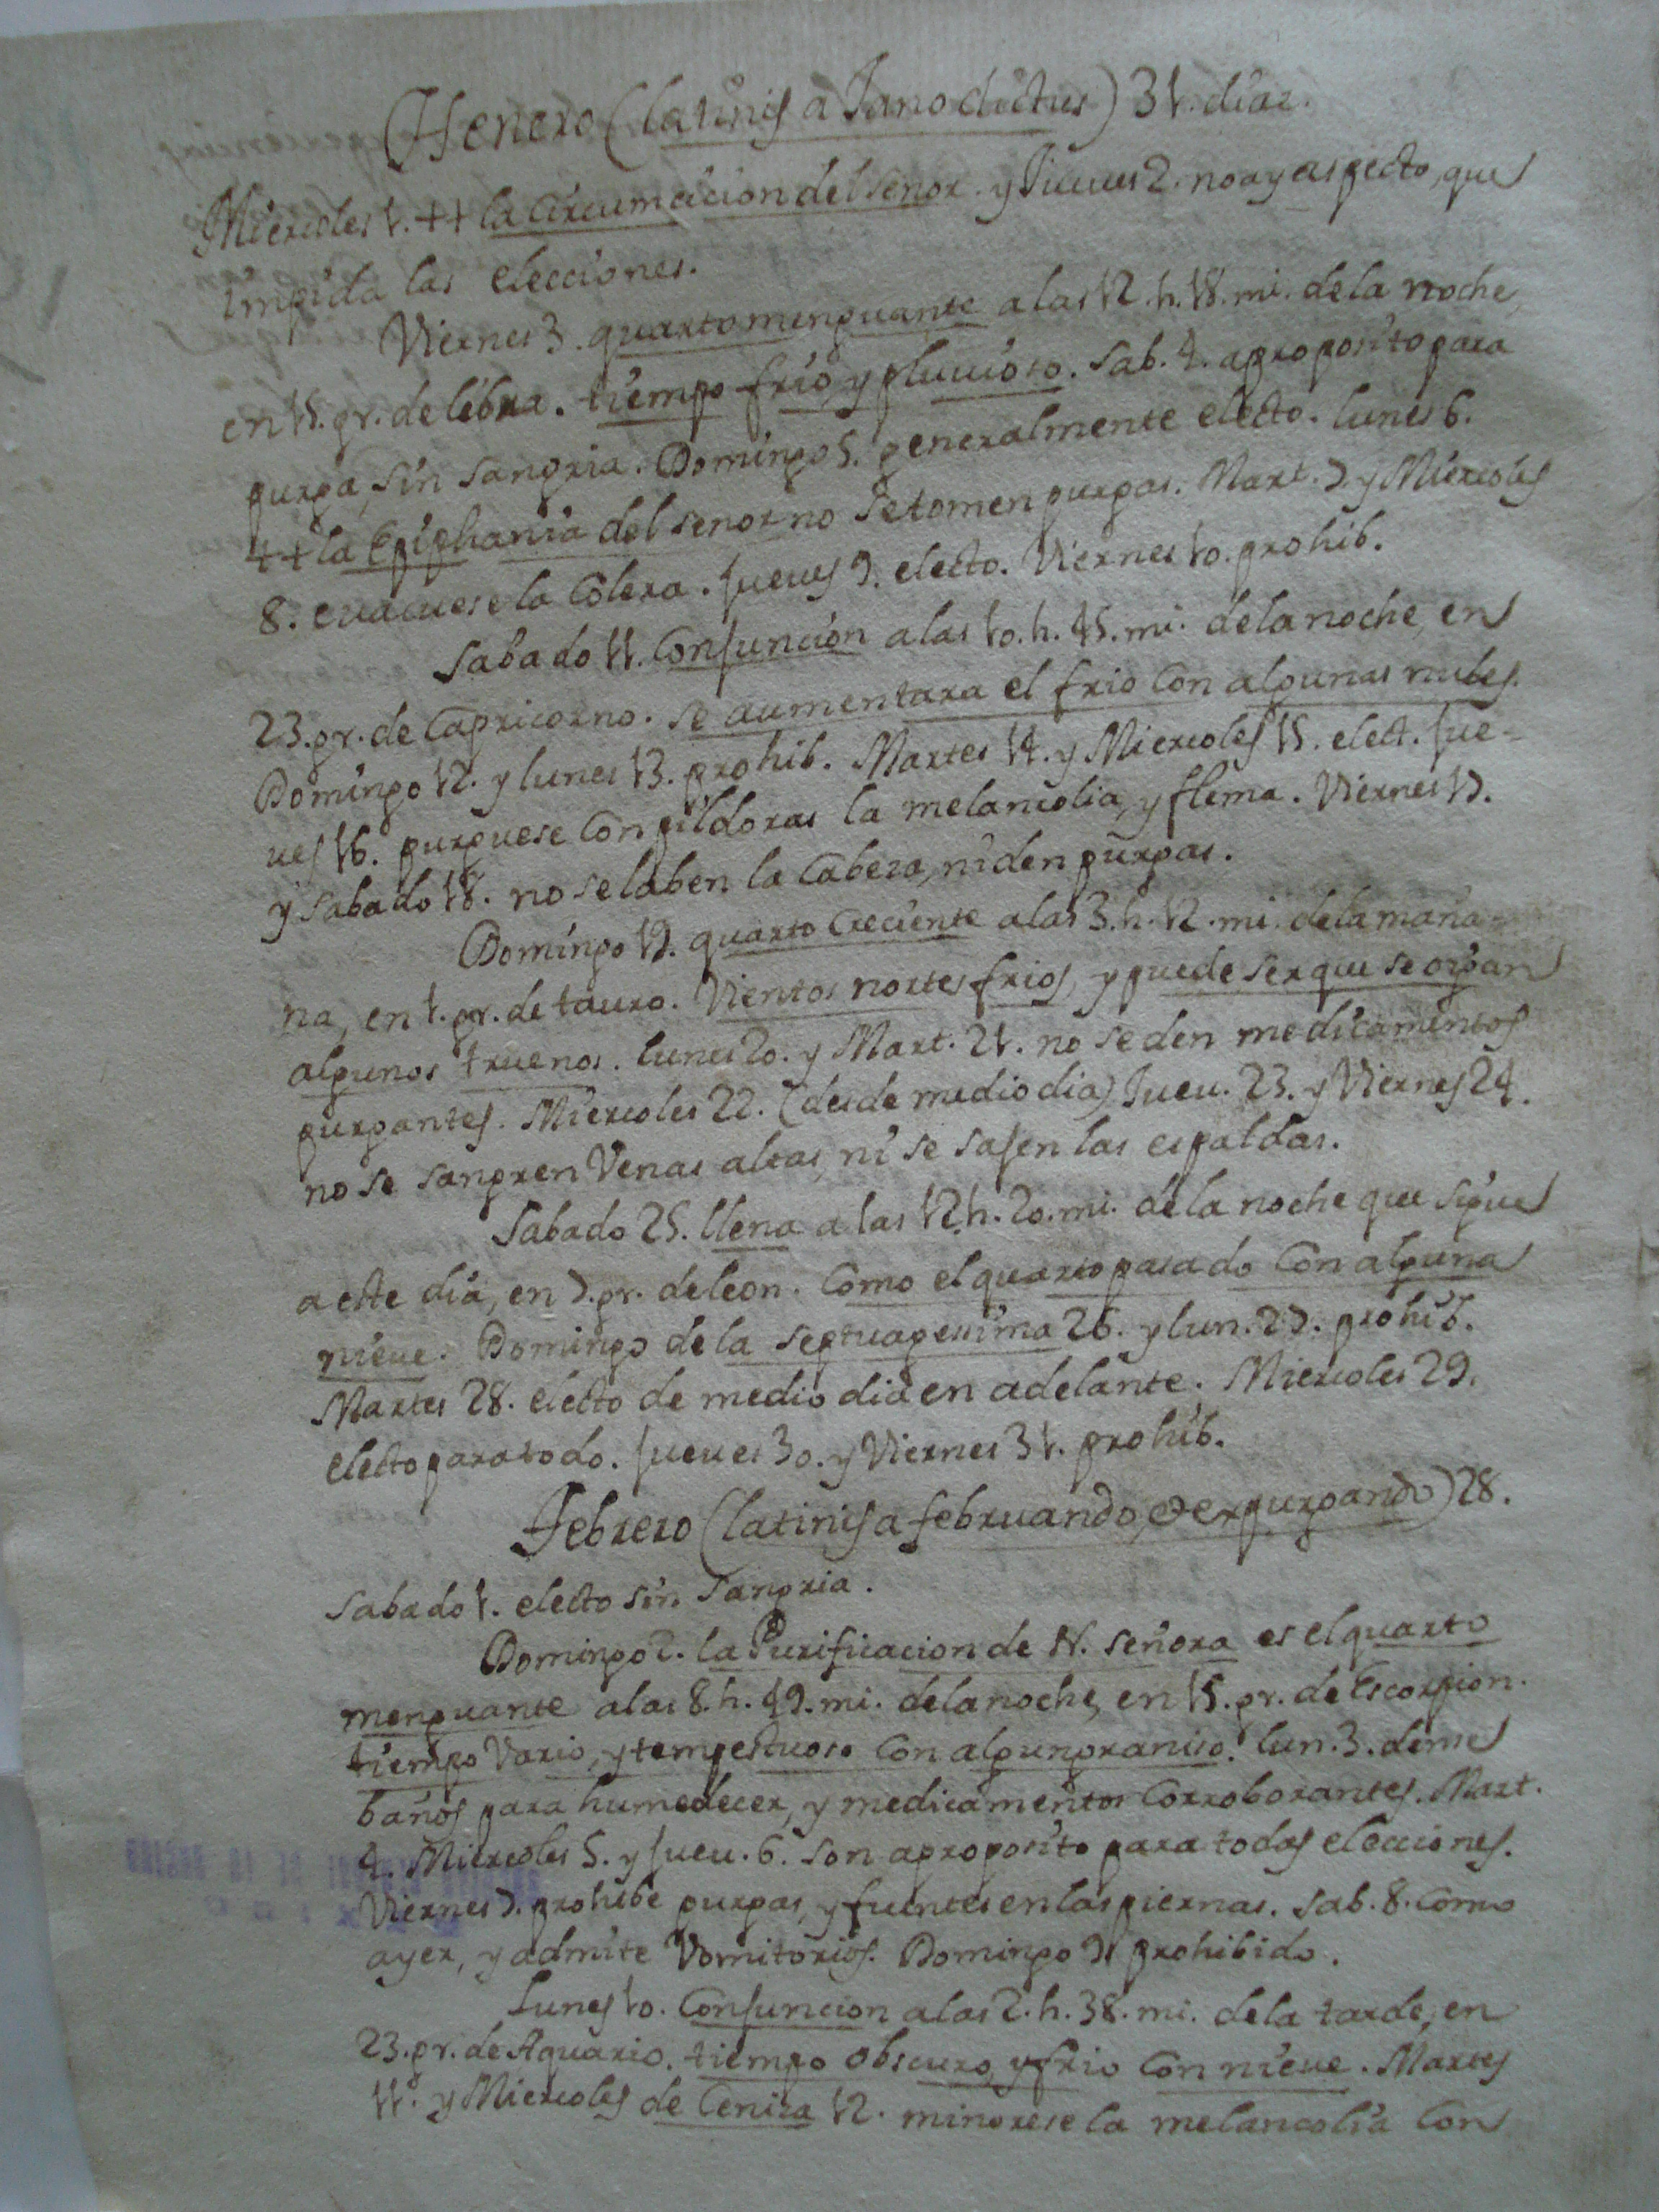 Henero (latinis a Jano dictus) 31. dias.
Miercoles 1. ++ la Circumcicion del señor. y Jueues 2. no ay aspecto, que
impida las elecciones.
Viernes 3. quarto menguante a las 12. h. 18. mi. de la noche,
en 15. gr. de libra. tiempo frio, y pluuioso. Sab. 4. aproposito para
purga, sin sangria. Domingo 5. generalmente electo. lunes 6.
++ la Epiphania del señor no se tomen purgas. Mart. 7. y Miercoles
8. euacuese la Colera. Jueues 9. electo. Viernes 10. prohib.
Sabado 11. Conjuncion a las 10. h. 45. mi. de la noche, en
23. gr. de Capricorno. se aumentara el frio Con algunas nubes.
Domingo 12. y lunes 13. prohib. Martes 14. y Miercoles 15. elect. Jue-
ues 16. purguese Con pildoras la melancolia, y flema. Viernes 17.
y Sabado 18. no se laben la Cabeza, ni den purgas.
Domingo 19. quarto Creciente a las 3. h. 12. mi. de la maña-
na, en 1. gr. de tauro. Vientos nortes frios, y puede ser que se oigan
algunos truenos. lunes 20. y Mart. 21. no se den medicamentos
purgantes. Miercoles 22. (desde medio dia) Jueu. 23. y Viernes 24.
no se sangren Venas altas, ni se sajen las espaldas.
Sabado 25. llena a las 12. h. 20. mi. de la noche que sigue
a este dia, en 7. gr. de leon. Como el quarto pasado Con alguna
nieue. Domingo de la septuagesima 26. y lun. 27. prohib.
Martes 28. electo de medio dia en adelante. Miercoles 29.
electo para todo. Jueues 30. y Viernes 31. prohib.
Febrero (latinis a februando, & expurgando) 28.
Sabado 1. electo sin sangria.
Domingo 2. la Purificacion de N. señora es el quarto
menguante a las 8. h. 49. mi. de la noche, en 15. gr. de Escorpion.
tiempo Vario, y tempestuoso Con algun granizo. lun. 3. dense
baños para humedecer, y medicamentos Corroborantes. Mart.
4. Miercoles 5. y Jueu. 6. son aproposito para todas elecciones.
Viernes 7. prohibe purgas, y fuentes en las piernas. Sab. 8. Como
ayer, y admite Vomitorios. Domingo 9. prohibido.
Lunes 10. Conjuncion a las 2. h. 38. mi. de la tarde, en
23. gr. de Aquario. tiempo obscuro, y frio Con nieue. Martes
11. y Miercoles de Ceniza 12. minorese la melancolia Con